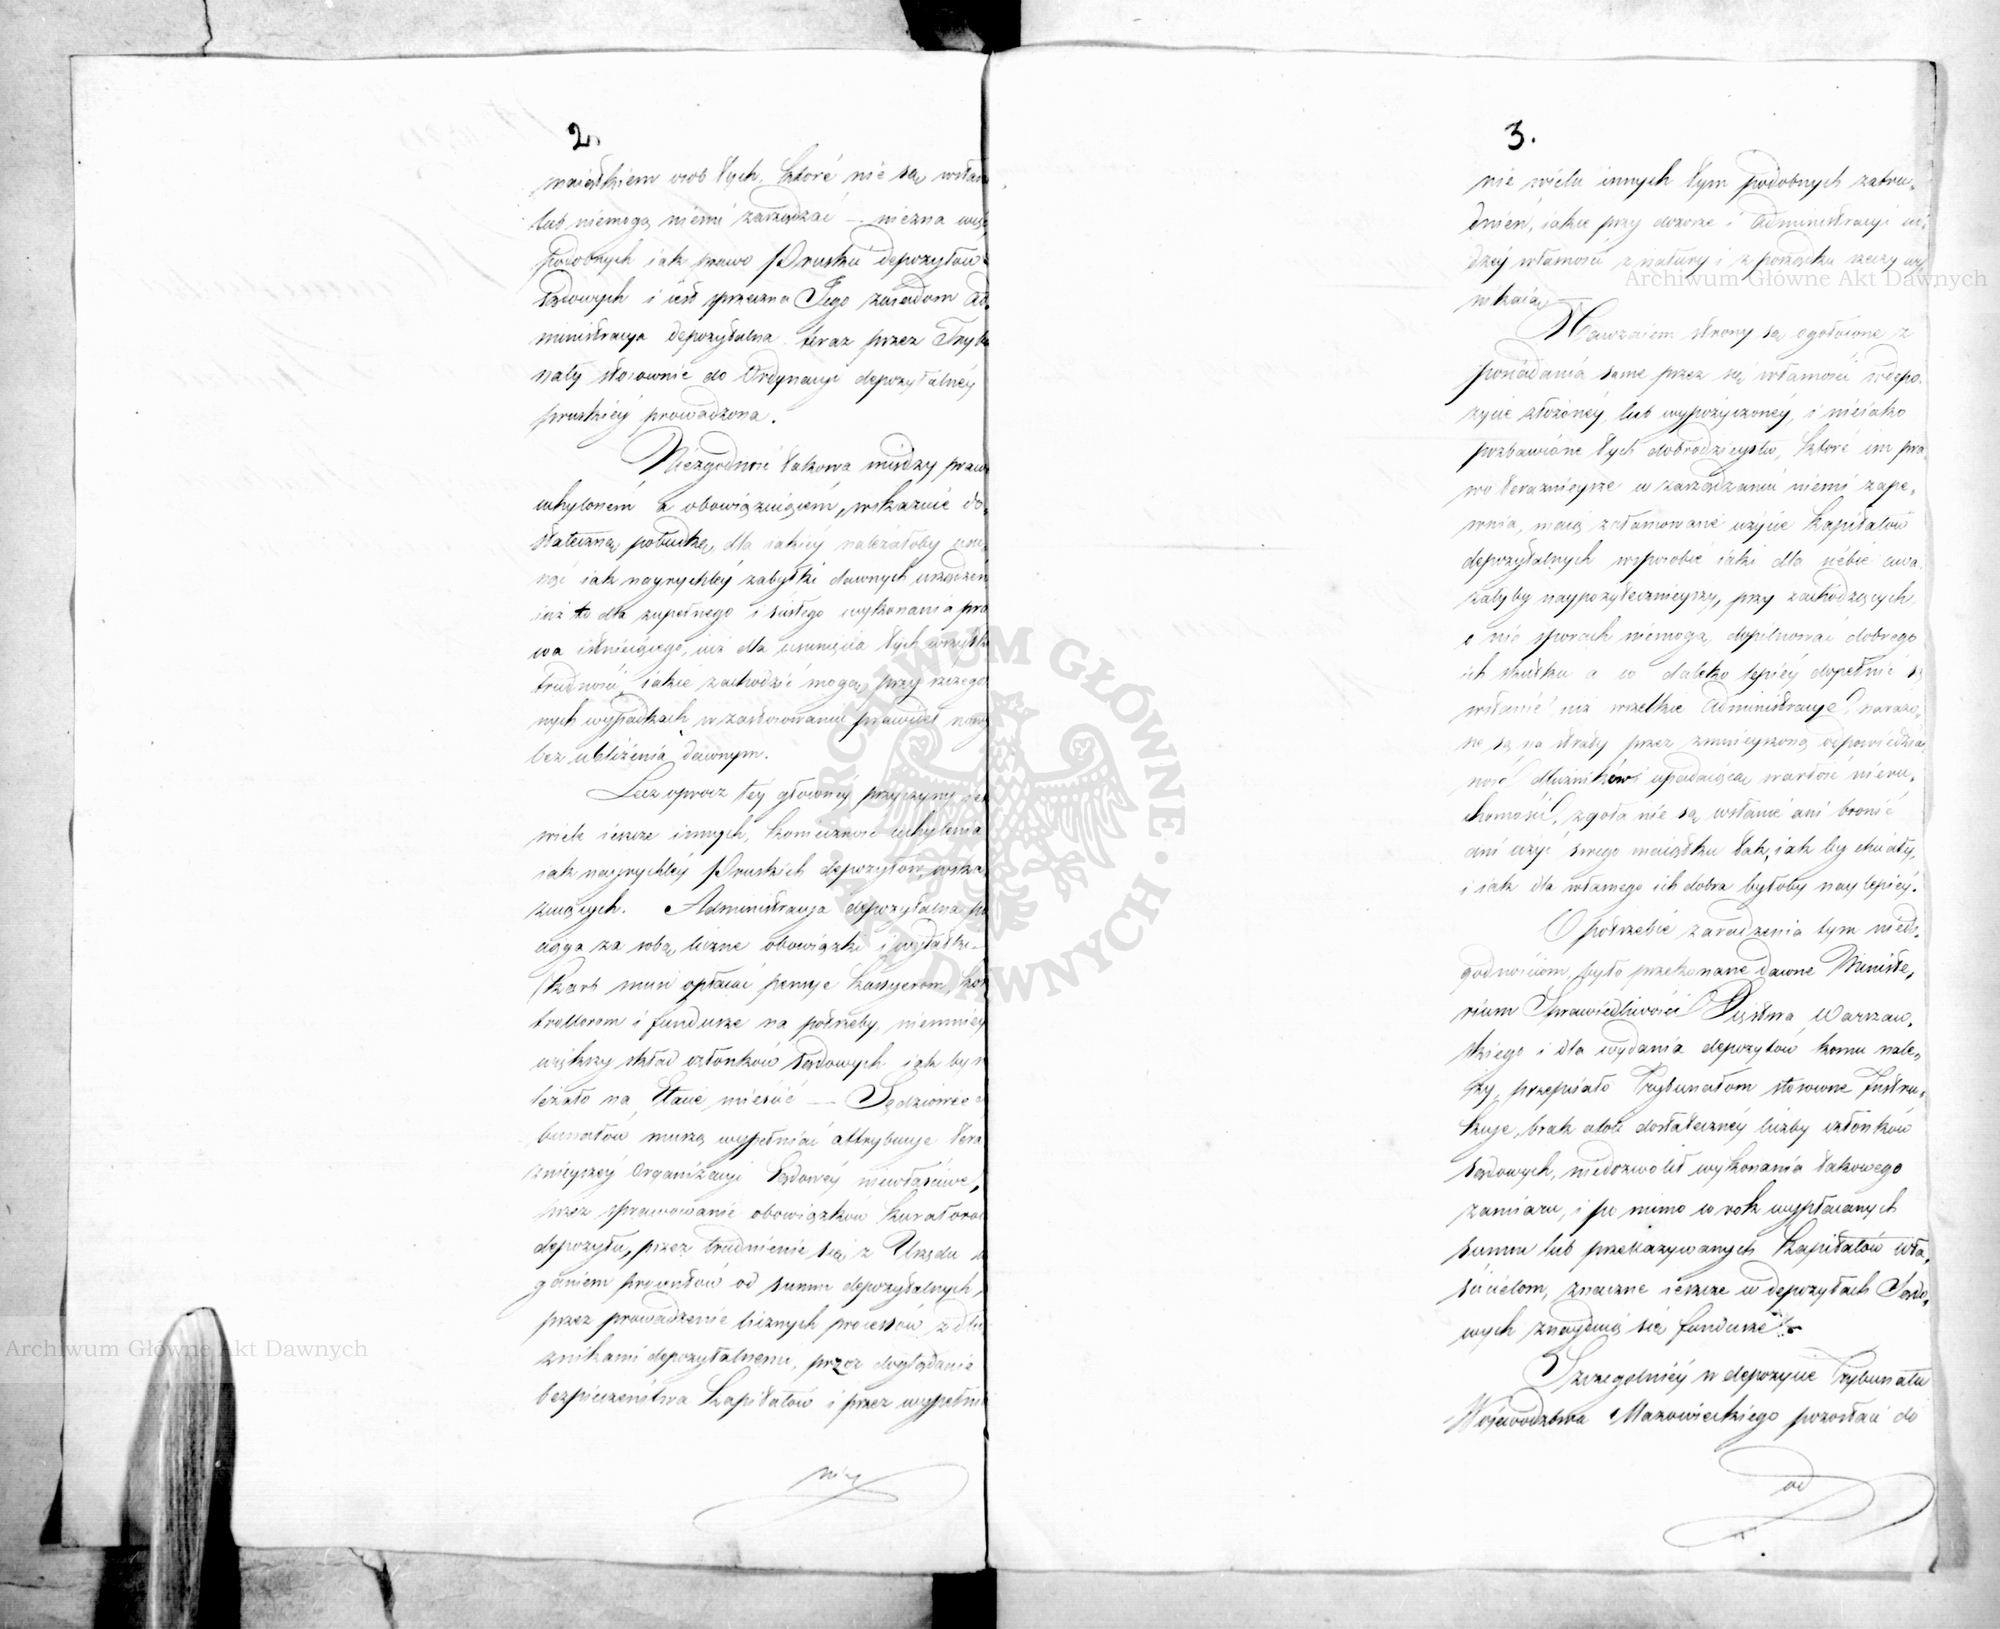 2.
maiątkiem osob tych, które nie są wstan
lub niemogą niemi zarządzać — niezna więc
podobnych iak prawo Pruskie depozytów
Sądowych i iest sprzeczna Jego zasadom Ad,
ministracya depozytalna teraz przez Trybu
nały stosownie do Ordynacyi depozytalnéy
pruskiéy prowadzona.
Niezgodność takowa między prawe
uchyloném a obowiązuiącém, wskazuie do,
stateczną pobudkę, dla iakiey należałoby usu,
nąć iak nayrychléy zabytki dawnych urządzeń
iuż to dla zupełnego i ścisłego wykonania pra
wa istnieiącego, iuż dla usunięcia tych wszystk
trudności iakie zachodzić mogą, przy
nych wypadkach w zastosowaniu prawideł nowy
bez ubliżenia dawnym.
Lecz oprocz téy głownéy przyczyny iest
wiele ieszcze innych, konieczność uchylenia
iak nayrychléy Pruskich depozytów, wska
zuiących. Administracya depozytalna po
ciąga za sobą liczne obowiązki i wydatki.
Skarb musi opłacać pensye Kassyerom, Kon
trollorom i fundusze na potrzeby, niemniéy
większy skład członków Sądowych iak by n
leżało na Etacie mieścić — Sędziowie
bunałów muszą wypełniać attrybucye tera
źnieyszéy Organizacyi Sądowéy niewłaściwe,
przez sprawowanie obowiązków Kuratorów
depozytu, przez trudnienie się z Urzędu
ganiem procentów od summ depozytalnych,
przez prowadzenie licznych processów z dłu
żnikami depozytalnemi, przez doglądanie
bezpieczeństwa Kapitałów i przez wypełnia
nie
3.
nie wielu innych tym podobnych zatru,
dnień, iakie przy dozorze i Administracyi cu,
dzéy własności z natury i z porządku rzeczy wy
nikaią.
Nawzaiem strony są ogołocone z
posiadania same przez się własności w depo,
zycie złożonéy lub wypożyczonéy, i nieiako
pozbawione tych dobrodzieystw, które im pra,
wo teraznieysze w zarządzaniu niemi zape,
wnia, maią zatamowane użycie Kapitałów
depozytalnych w sposobie iaki dla siebie uwa,
żałyby naypożytecznieyszy, przy zachodzących
o nie sporach niemogą dopilnować dobrego
ich skutku a co daleko lepiéy dopełnić są
wstanie niż wszelkie Administracye, narażo,
ne są na straty przez zmnieyszoną odpowiedzial
ność dłużników i upadaiącą wartość nieru,
chomości, zgoła nie są wstanie ani bronić
ani użyć swego maiątku tak, iak by chciały,
i iak dla własnego ich dobra byłoby naylepiéy.
O potrzebie zaradzenia tym niedo,
godnościom, było przekonane dawne Ministe,
rium Sprawiedliwości Xięstwa Warszaw,
skiego i dla wydania depozytów komu nale,
ży, przepisało Trybunałom stosowne Instru,
kcye, brak atoli dostatecznéy liczby członków
Sądowych, niedozwolił wykonania takowego
zamiaru, i po mimo co rok wypłacanych
summ lub przekazywanych Kapitałów wła,
ścicielom, znaczne ieszcze w depozytach Sądo,
wych znayduią się fundusze.
Szczególniéy w depozycie Trybunału
Woiewództwa Mazowieckiego pozostaie do
od
Archiwum Główne Akt Dawnych
Archiwum Główne Akt Dawnych
ARCHIWUM GŁÓWNE AKT DAWNYCH